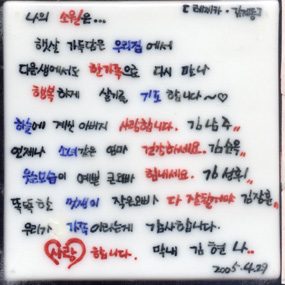 나의 소원은...
햇살 가득담은 우리집 에서
다음생에서도 한가족으로 다시 만나
행복하게 살기를 기도 합니다~♡
하늘에 계신 아버지 사랑합니다. 김남주
언제나 소녀같은 엄마 건강하세요.
웃는모습이 예쁜 큰오빠 힘내세요.
똑똑한 작은오빠 다 잘될거야
우리가 가족 이라는게 감사합니다.
사랑 합니다. 막내 김현나..
2005.4.29